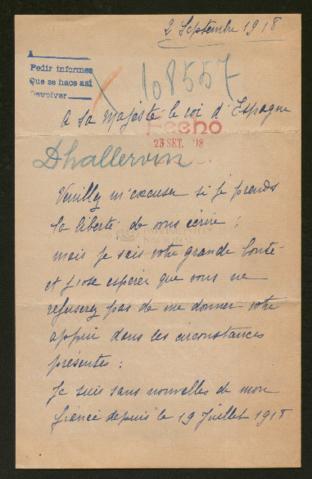 2 Septembre 1918
A
Pedir informes
Que se hace así
Devolver
108557
A sa majesté le roi d'Espagne
HECHO
23 SET. 18
Dhallervin
Veuillez m'excuser si je prends
la liberté de vous écrire ;
mais je sais votre grande bonté
et j'ose espérer que vous ne
refuserez pas de me donner votre
appui dans les circonstances
présentes :
Je suis sans nouvelles de mon
fiancé depuis le 19 Juillet 1918